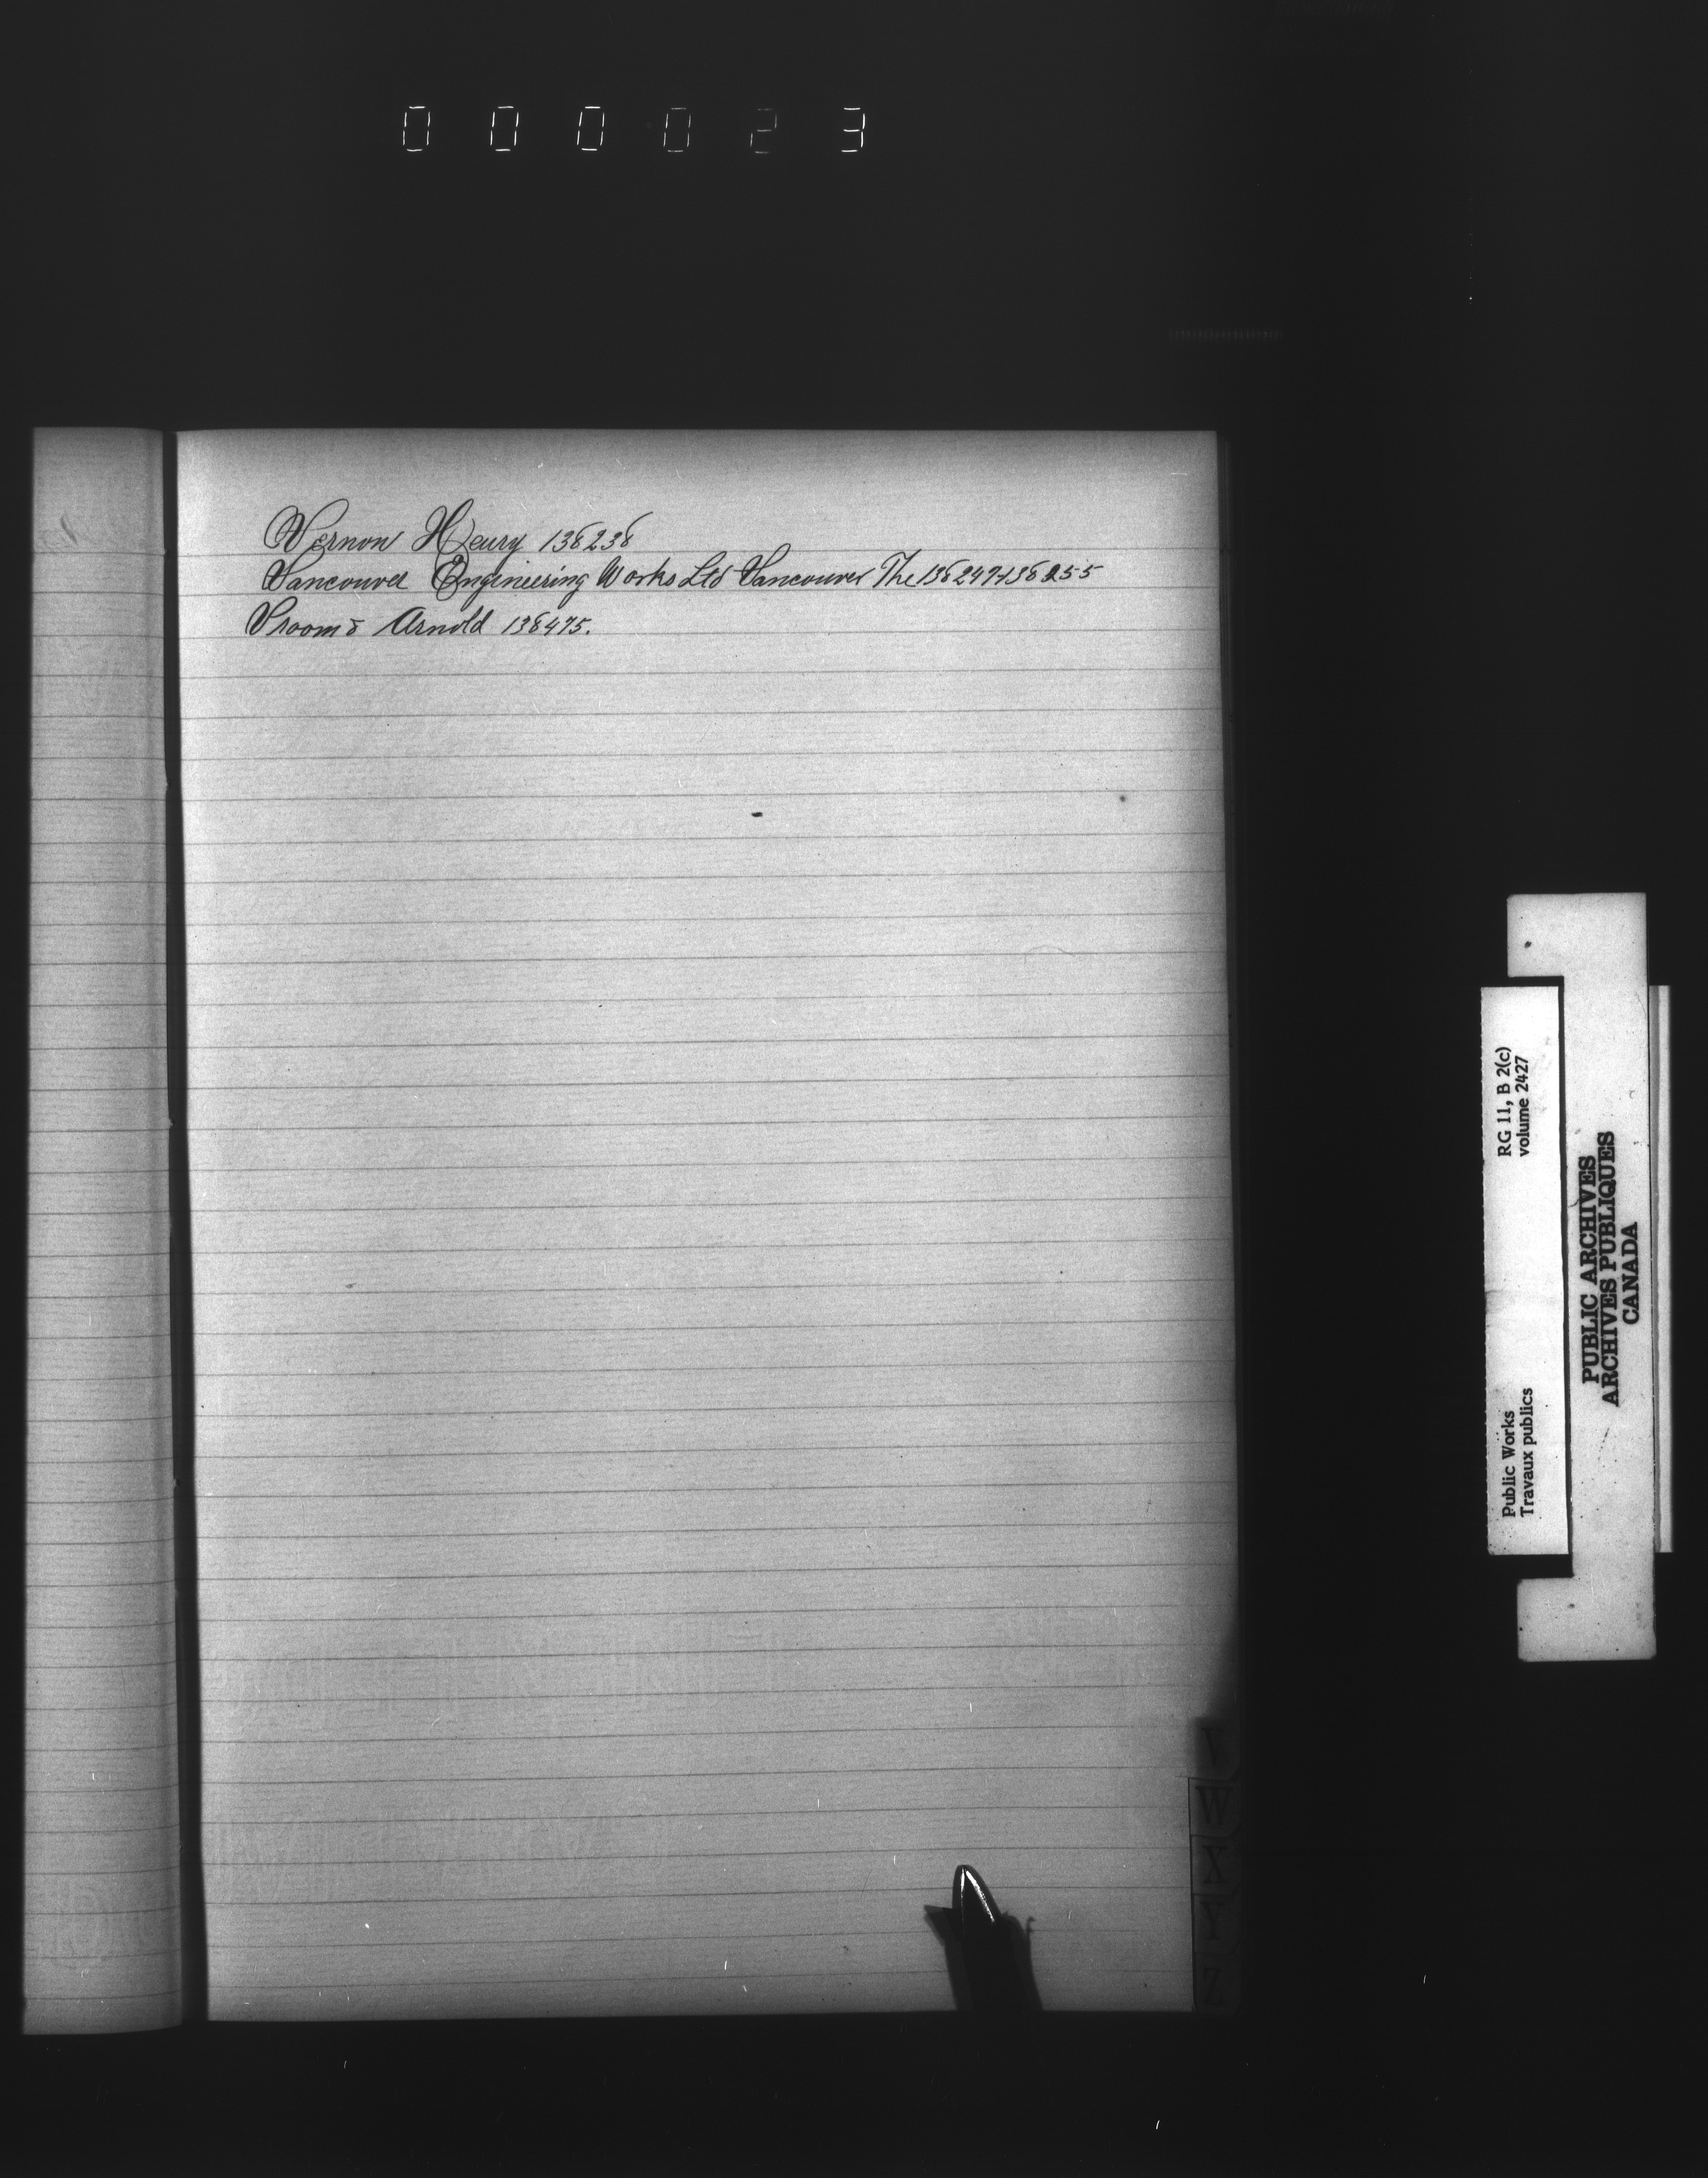 000023
Vernon Henry 138238
Vancouver Engineering Works Ltd Vancouver The 138247-138255
Vroom & Arnold 138475.
V
W
X
Y
Z
Public Works
Travaux publics
RG 11, B 2(c)
volume 2427
PUBLIC ARCHIVES
ARCHIVES PUBLIQUES
CANADA